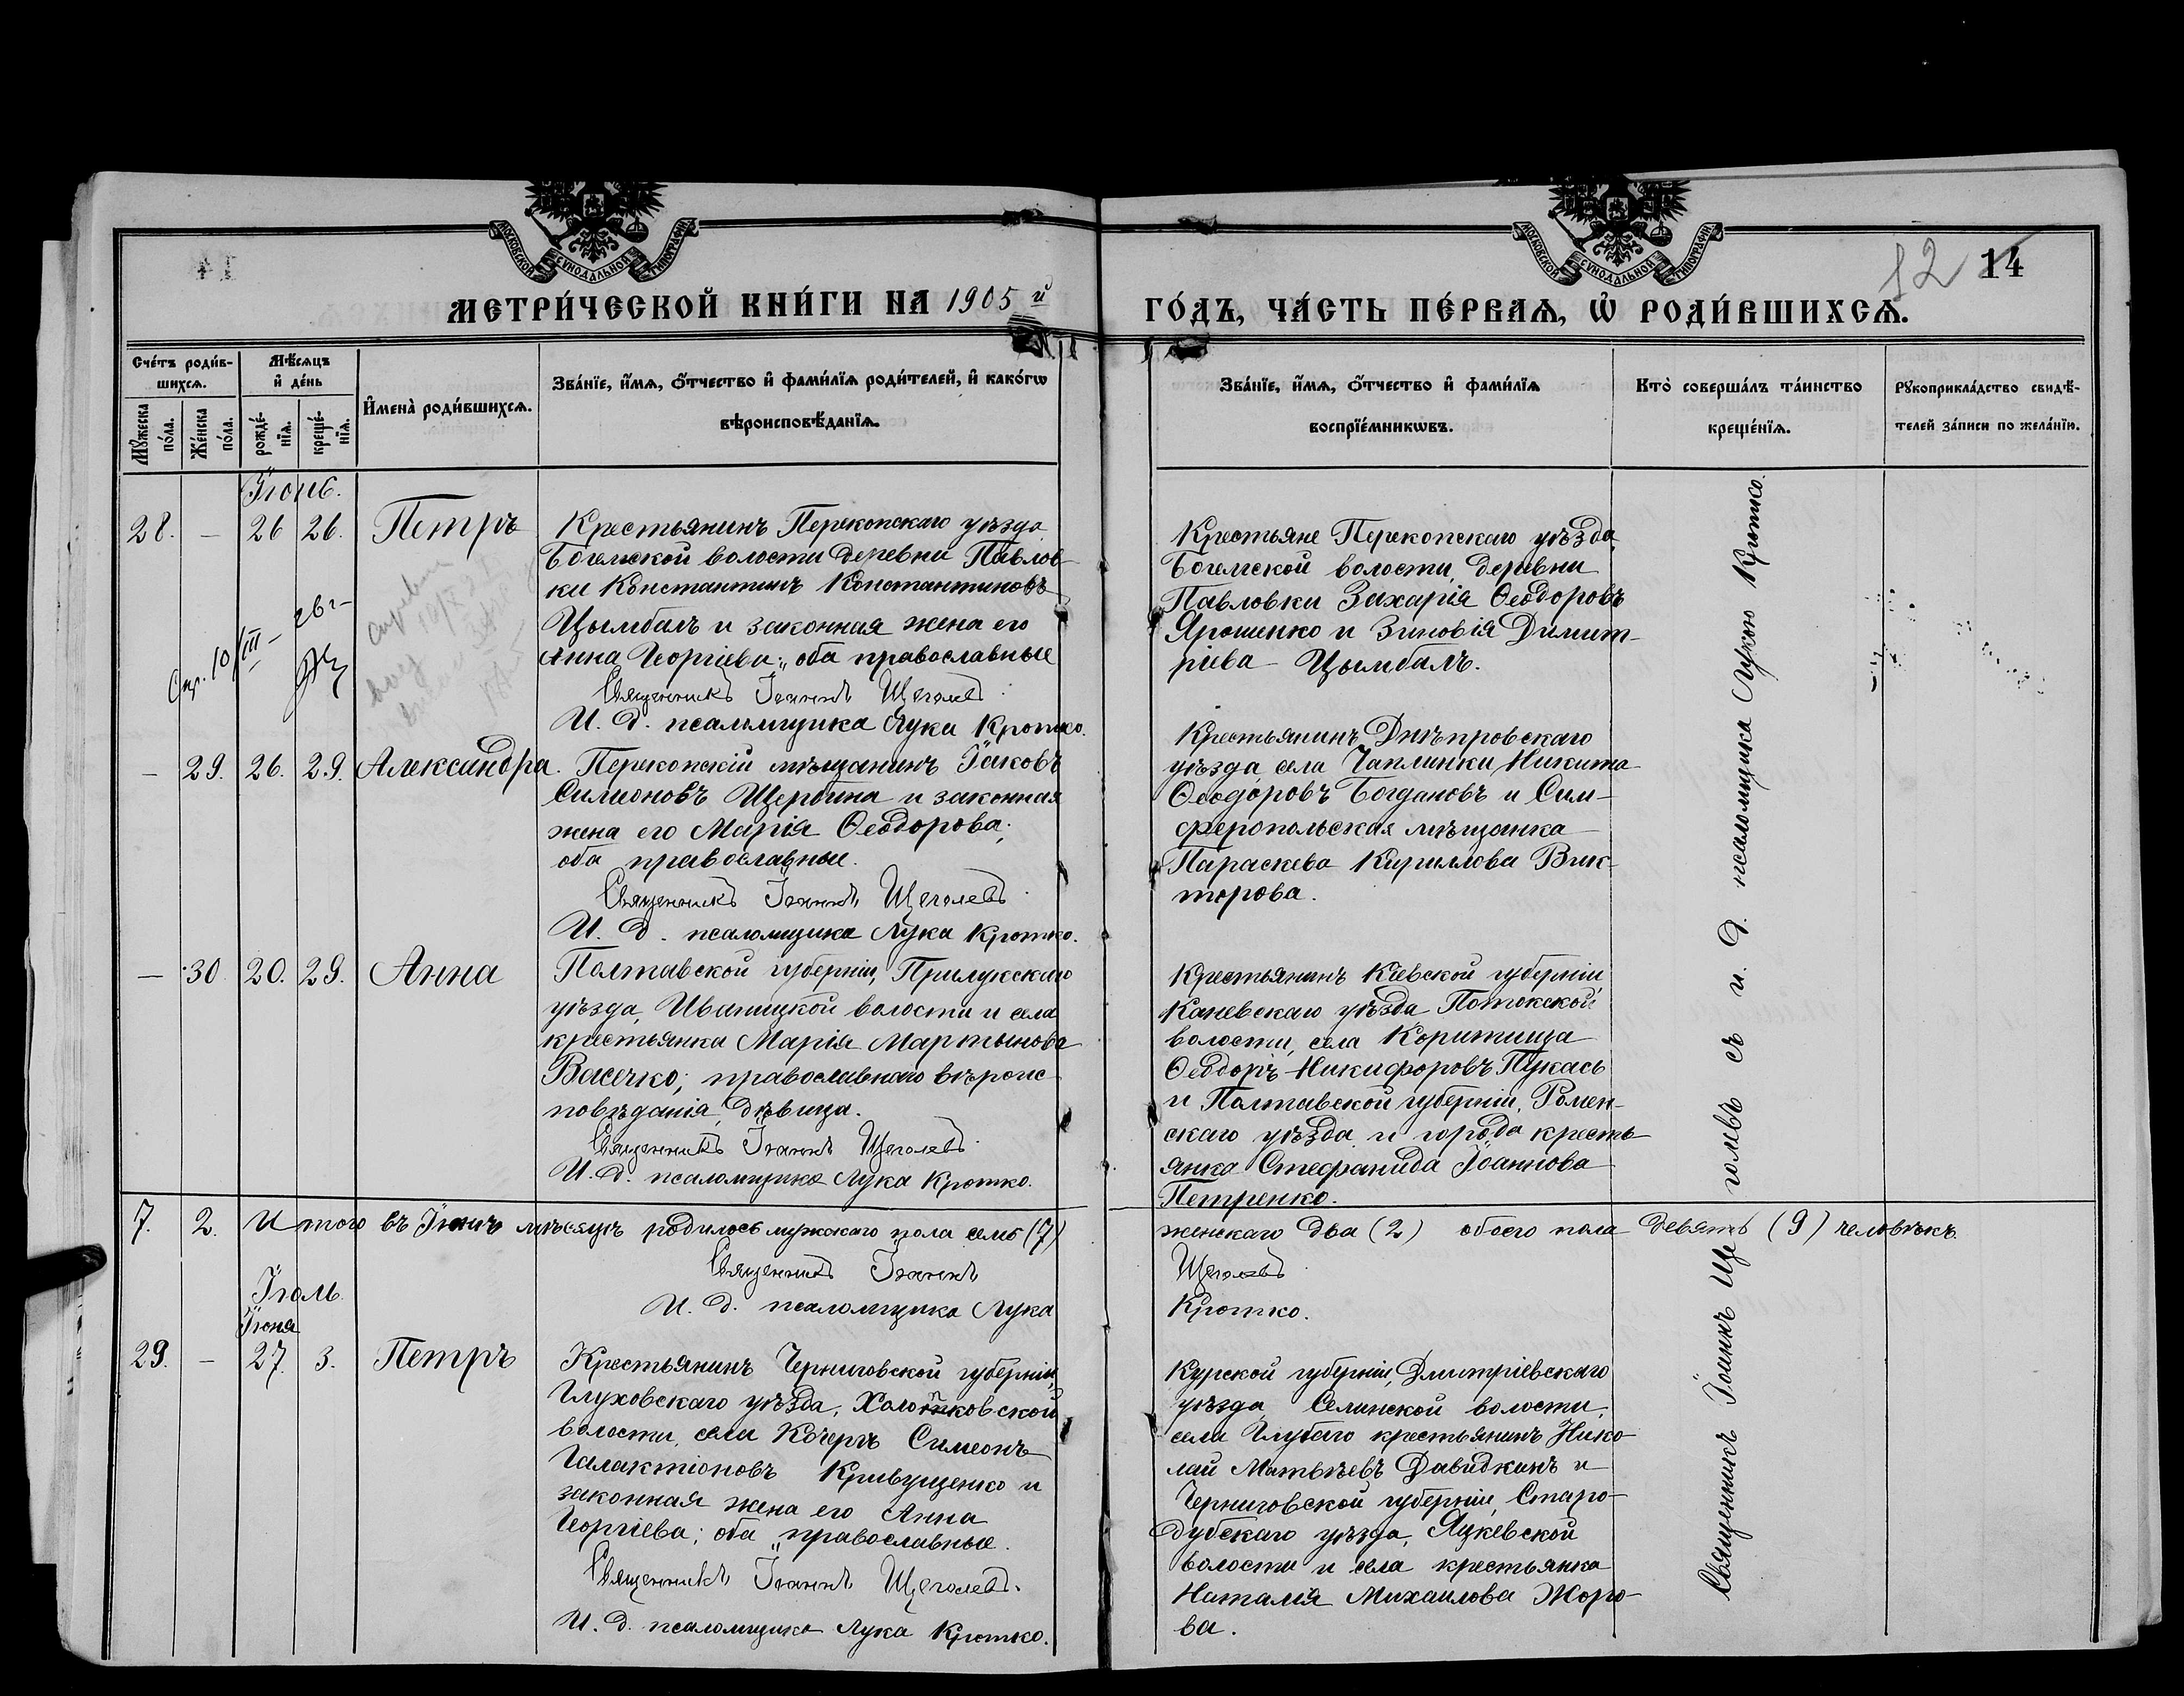 МОСКОВСКОЙ СѴНОДАЛЬНОЙ ТИПОГРАФІИ
МОСКОВСКОЙ СѴНОДАЛЬНОЙ ТИПОГРАФІИ
12 14
МЕТРИ́ЧЕСКОЙ КНИ́ГИ НА 1905 й
ГО́ДЪ, ЧА́СТЬ ПЕ́РВАѦ, Ѡ҆ РОДИ́ВШИХСѦ.
Сче́тъ роди́в-
шихсѧ.
Мꙋ́жеска по́ла.
Же́нска по́ла.
Мѣ́сѧцъ и҆ де́нь
рожде́-нїѧ.
креще́-нїѧ.
И҆мена̀ роди́вшихсѧ.
Зва́нїе, и҆́мѧ, ѻ҆́тчество и҆ фами́лїѧ роди́телей, и҆ како́гѡ
вѣроисповѣ́данїѧ.
Зва́нїе, и҆́мѧ, ѻ҆́тчество и҆ фами́лїѧ
воспрїе́мникѡвъ.
Кто̀ соверша́лъ та́инство
креще́нїѧ.
Рꙋкоприкла́дство свидѣ́-
телей за́писи по жела́нїю.
Іюнь.
28. — 26 26. Петръ
Крестьянинъ Перекопскаго уѣзда,
Богемской волости деревни Павлов-
ки Константинъ Константиновъ
Цымбалъ и законная жена его
Анна Георгіева; оба православные
Священникъ Іоаннъ Щеголевъ.
И. д. псаломщика Лука Кротко.
Крестьяне Перекопскаго уѣзда,
Богемской волости, деревни
Павловки Захарія Ѳеодоровъ
Ярошенко и Зиновія Димит-
ріева Цымбалъ.
— 29. 26. 29. Александра.
Перекопскій мѣщанинъ Іаковъ
Симеоновъ Щербина и законная
жена его Марія Ѳеодорова;
оба православные.
Священникъ Іоаннъ Щеголевъ.
И. д. псаломщика Лука Кротко.
Крестьянинъ Днѣпровскаго
уѣзда, села Чаплинки Никита
Ѳеодоровъ Богдановъ и Сим-
феропольская мѣщанка
Параскева Кириллова Вик-
торова.
— 30 20. 29. Анна
Полтавской губерніи, Прилукскаго
уѣзда, Иваницкой волости и села
крестьянка Марія Мартынова
Васечко; православнаго вѣроис-
повѣданія, дѣвица.
Священникъ Іоаннъ Щеголевъ.
И. д. псаломщика Лука Кротко.
Крестьянинъ Кіевской губерніи
Каневскаго уѣзда, Потокской
волости, села Коритища
Ѳеодоръ Никифоровъ Пукась
и Полтавской губерніи, Ромен-
скаго уѣзда и города кресть-
янка Стефанида Іоаннова
Петренко.
7. 2. Итого въ Іюнѣ мѣсяцѣ родилось мужскаго пола семь (7)
женскаго два (2) обоего пола девять (9) человѣкъ.
Священникъ Іоаннъ
Щеголевъ.
И. д. псаломщика Лука
Кротко.
Іюль.
Іюня
29. — 27. 3. Петръ
Крестьянинъ Черниговской губерніи,
Глуховскаго уѣзда, Холопковской
волости, села Кочергъ Симеонъ
Галактіоновъ Кривущенко и
законная жена его Анна
Георгіева; оба православные.
Священникъ Іоаннъ Щеголевъ.
И. д. псаломщика Лука Кротко.
Курской губерніи, Дмитріевскаго
уѣзда, Селинской волости,
села Глубаго крестьянинъ Нико-
лай Матвѣевъ Давидкинъ и
Черниговской губерніи, Старо-
дубскаго уѣзда, Яцкевской
волости и села крестьянка
Наталія Михаилова Жоро-
ва.
Священникъ Іоаннъ Щеголевъ съ и. д. псаломщика Лукою Кротко.